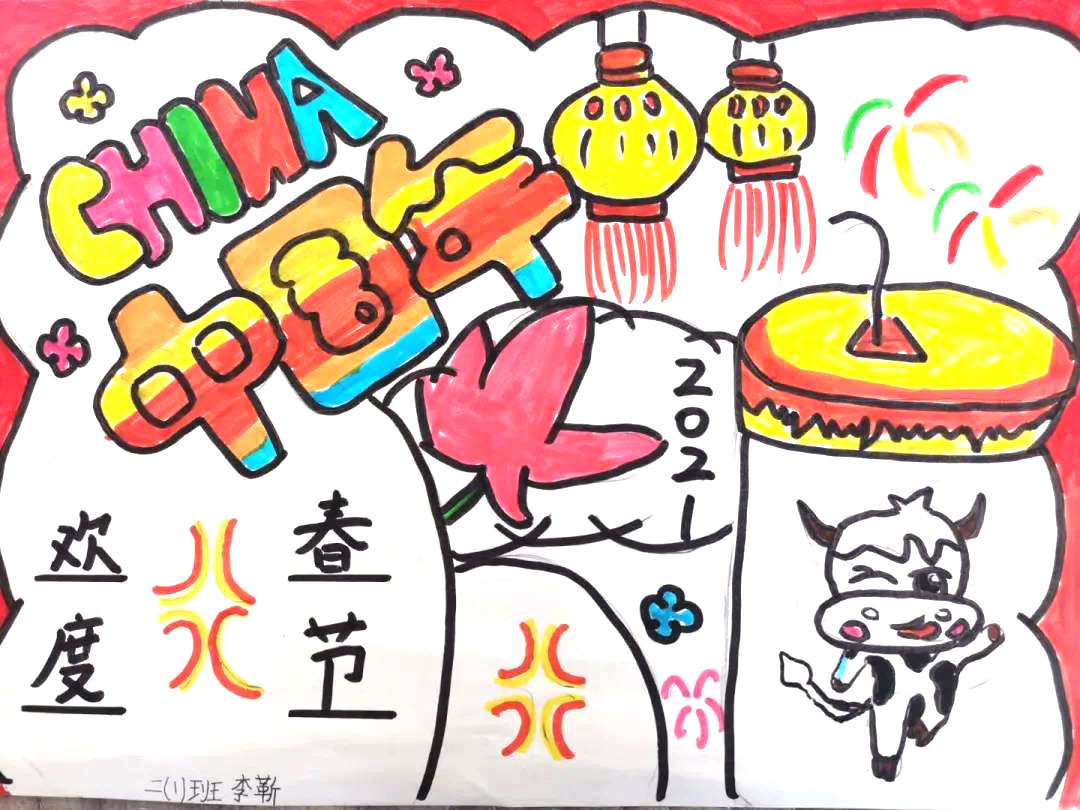 CHINA
中国年
2021
欢度
春节
二(1)班 李靳